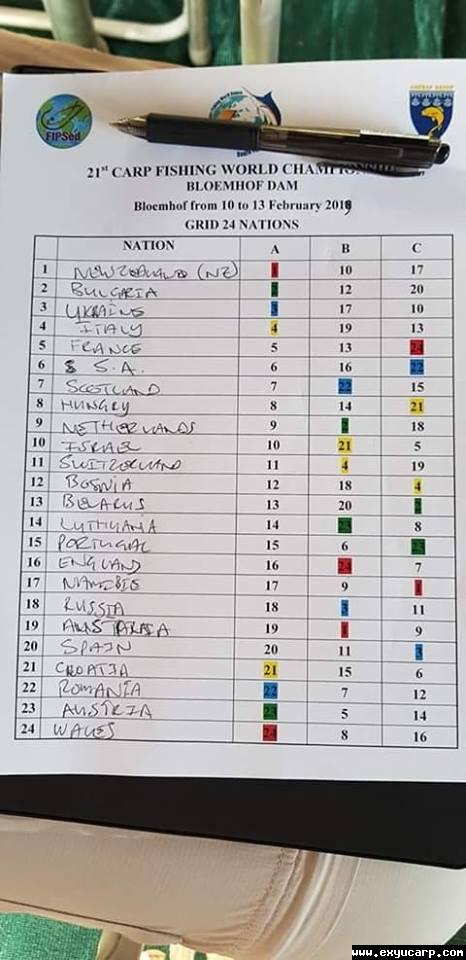 FIPSed
21st CARP FISHING WORLD CHAMPIONSHIP
BLOEMHOF DAM
Bloemhof from 10 to 13 February 2019
GRID 24 NATIONS
NATION A B C
1 NEW ZEALAND (NZ) 1 10 17
2 BULGARIA 2 12 20
3 UKRAINE 3 17 10
4 ITALY 4 19 13
5 FRANCE 5 13 24
6 S.A. 6 16 22
7 SCOTLAND 7 22 15
8 HUNGRY 8 14 21
9 NETHERLANDS 9 2 18
10 ISRAEL 10 21 5
11 SWITZERLAND 11 4 19
12 BOSNIA 12 18 4
13 BELARUS 13 20 2
14 LUTHUANA 14 23 8
15 PORTUGAL 15 6 23
16 ENGLAND 16 24 7
17 NAMIBIE 17 9 1
18 RUSSIA 18 3 11
19 19 1 9
20 SPAIN 20 11 3
21 CROATIA 21 15 6
22 ROMANIA 22 7 12
23 AUSTRIA 23 5 14
24 WALES 24 8 16
www.exyucarp.com